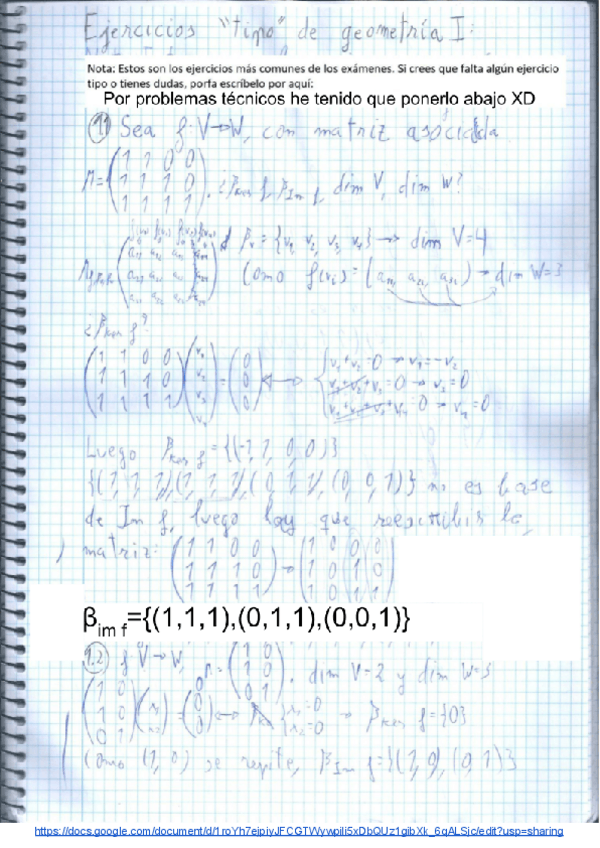 Ejercicios "tipo" de geometría I:
Nota: Estos son los ejercicios más comunes de los exámenes. Si crees que falta algún ejercicio
tipo o tienes dudas, porfa escríbelo por aquí:
Por problemas técnicos he tenido que ponerlo abajo XD
1.1 Sea f: V→W, con matriz asociada
M = (1 1 0 0
1 1 1 0
1 1 1 1). ¿β_Ker f, β_Im f, dim V, dim W?
β_V = {v₁ v₂ v₃ v₄} → dim V=4
Como f(v₁) = (a₁₁, a₂₁, a₃₁) → dim W=3
¿β_Ker f?
(1 1 0 0
1 1 1 0
1 1 1 1) (v₁ v₂ v₃ v₄) = (0 0 0) ↔ { v₁+v₂=0 → v₁=-v₂
v₁+v₂+v₃=0 → v₃=0
v₁+v₂+v₃+v₄=0 → v₄=0
Luego β_Ker f = {(-1, 1, 0, 0)}
{(1, 1, 1), (1, 1, 1), (0, 1, 1), (0, 0, 1)} no es base
de Im f, luego hay que reescribir la
matriz: (1 1 0 0
1 1 1 0
1 1 1 1)
β im f={(1,1,1),(0,1,1),(0,0,1)}
1.2 f: V→W, M = (1 0
1 0
0 1). dim V=2 y dim W=3
(1 0
1 0
0 1) = (0 0 0) ↔ → β_Ker f={0}
Como (1, 0) se repite, β_Im f={(1, 0), (0, 1)}
https://docs.google.com/document/d/1roYh7ejpiyJFCGTWywpiIi5xDbQUz1gibXk_6qALSjc/edit?usp=sharing